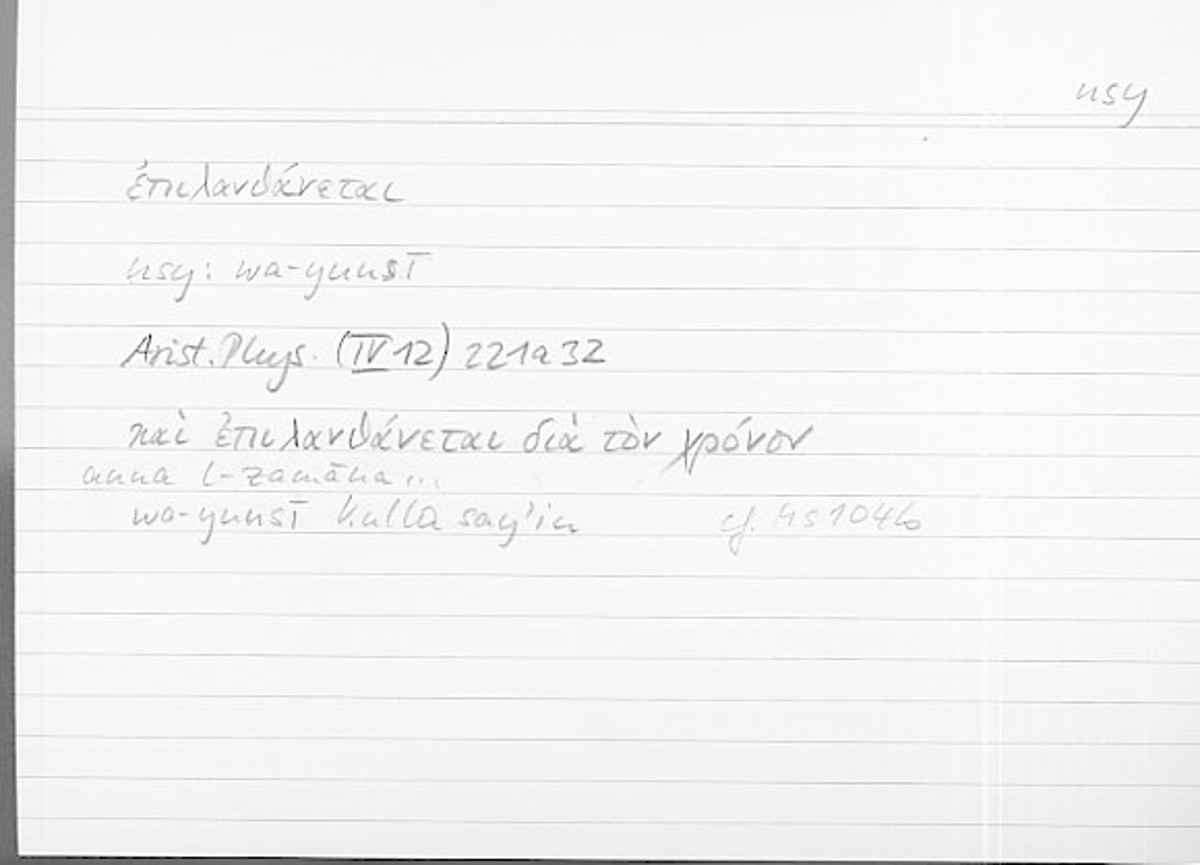 nsy
ἐπιλανθάνεται
nsy: wa-yunsī
Arist. Phys. (IV 12) 221a32
καὶ ἐπιλανθάνεται διὰ τὸν χρόνον
anna l-zamāna...
wa-yunsī kulla say'in cf. Hs 104b